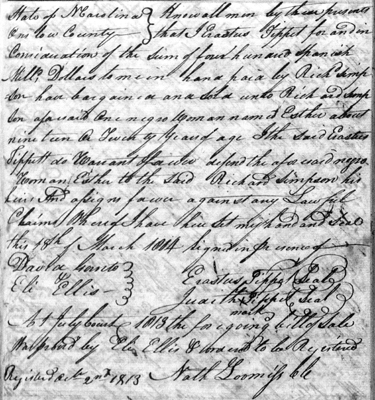 State of N Carolina } Know all men by these presents
Onslow County } that I Erastus Tippet for and in
Consideration of the sum of four hundred Spanish
Mill'd Dollars to me in hand paid by Rich'd Simp
son have bargained and sold unto Richard Simp
son aforesaid One negro Woman named Esther about
nineteen or Twenty years of age I the said Erastus
Tippett do Warrant & forever defend the aforesaid negro
Woman Esther to the said Richard Simpson his
heirs And assigns forever against any Lawful
Claims Whereof I have here set my hand and Seal
this 18th of March 1814 Signed in presence of
David
Eli Ellis
Erastus Tippet Seal
Judith Tippet Seal
mark
At July Court 1813 the foregoing bill of Sale
Was proved by Eli Ellis & ordered to be Registered
Registered Oct 2nd 1813 Nath Loomis